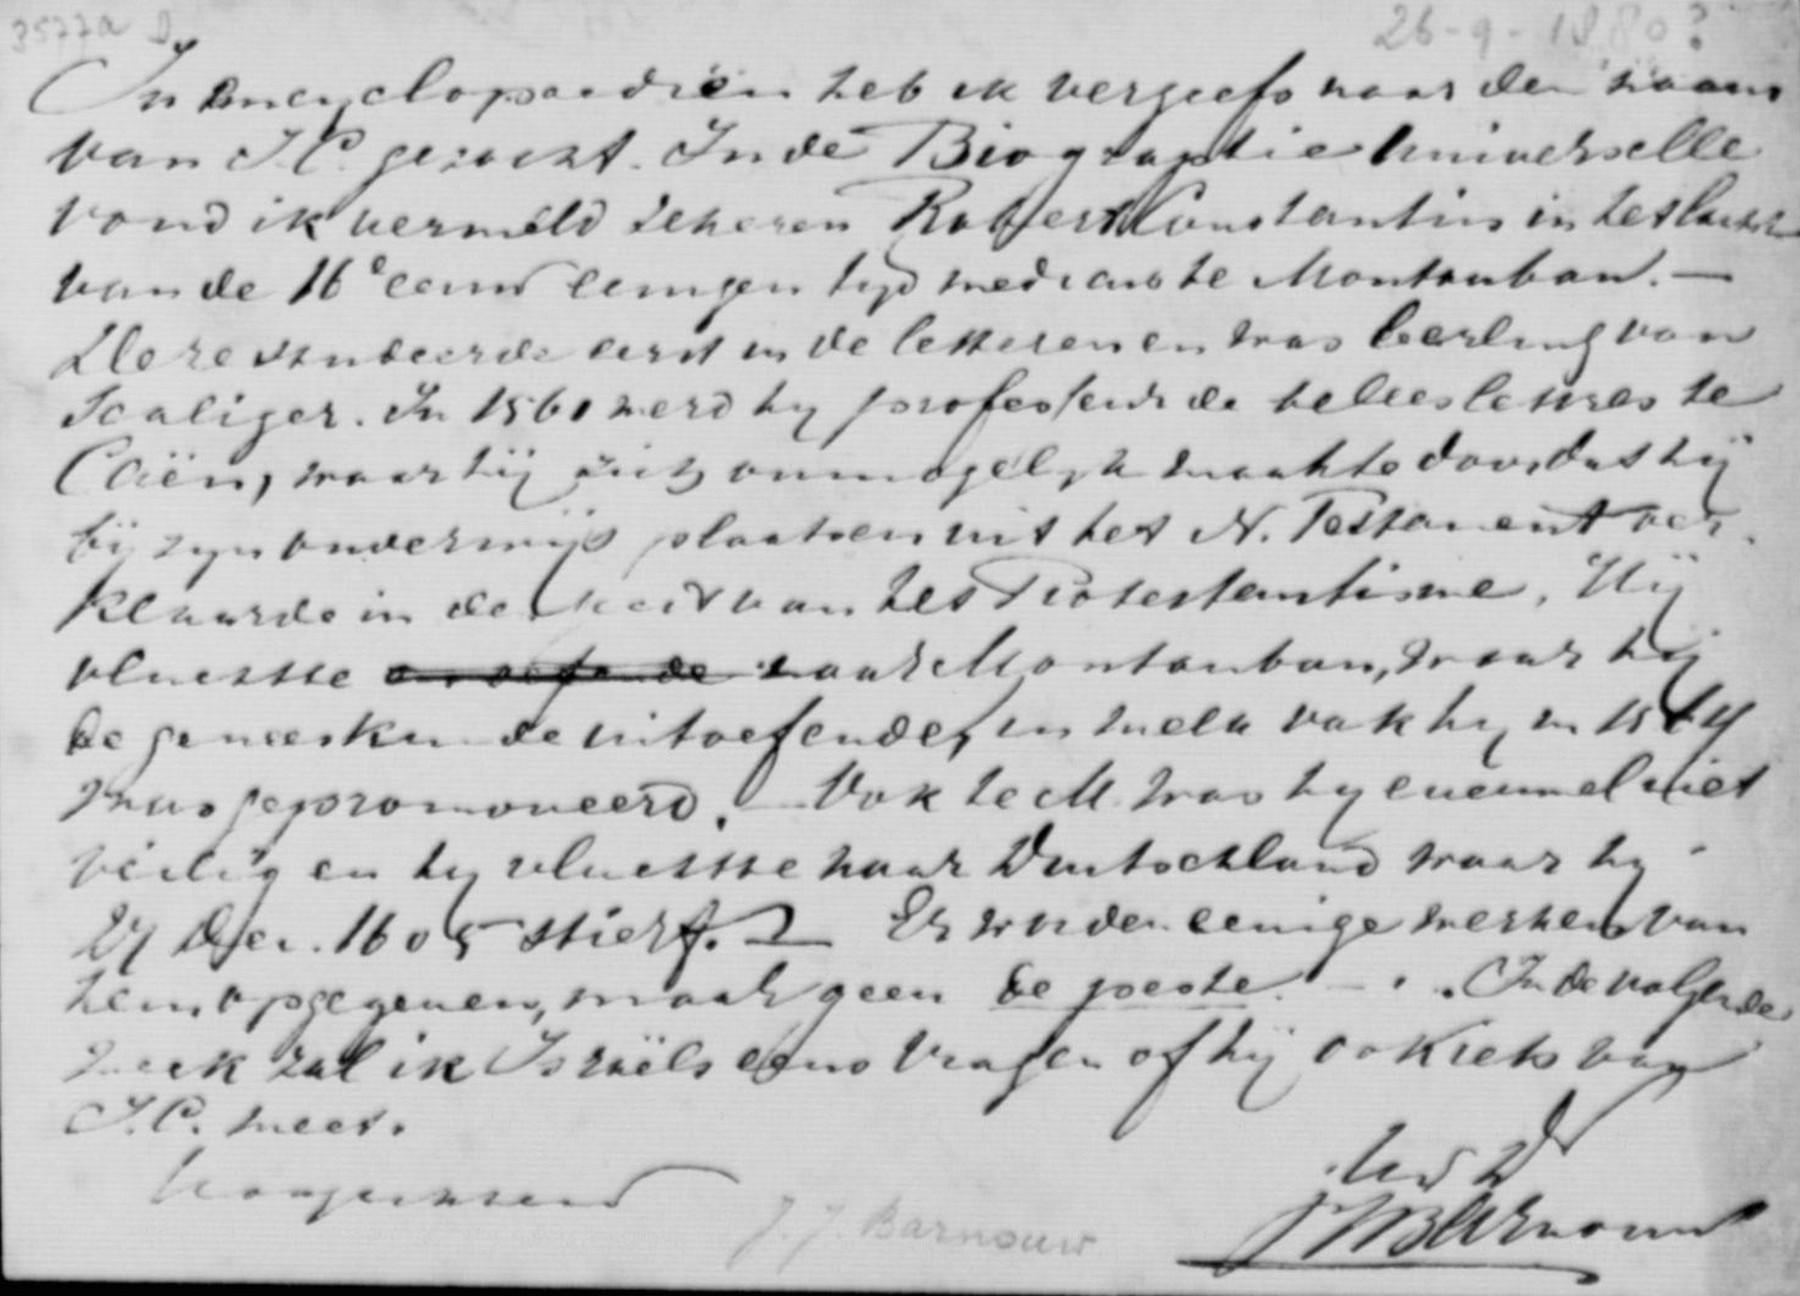 3577a D.
26-9-1880?
In Encyclopaediën heb ik vergeefs naar den naam
van J.C. gezocht. In de Biographie universelle
vond ik vermeld zekeren Robert Constantin in het laatst
van de 16e eeuw eenigen tijd medicus te Montauban. —
Deze studeerde eerst in de letteren en was leerling van
Scaliger. In 1560 werd hij professeur de belles lettres te
Caën, waar hij zich onmogelijk maakte doordat hij
bij zijn onderwijs plaatsen uit het N. Testament ver-
klaarde in den geest van het Protestantisme. Hij
vluchtte naar Montauban, waar hij
de geneeskunde uitoefende, in welk vak hij in 1564
was gepromoveerd. — Ook te M. was hij evenwel niet
veilig en hij vluchtte naar Duitschland waar hij
27 Dec. 1605 stierf. — Er worden eenige werken van
hem opgegeven, maar geen de peste. — . In de volgende
week zal ik Israëls eens vragen of hij ook iets van
J.C. weet.
Hoogachtend
J.J. Barnouw
Uw Dr
JJBarnouw